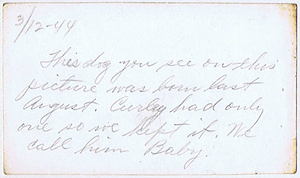 3/12-44
This dog you see on this
picture was born last
August. Curley had only
one so we kept it. We
call him Baby.